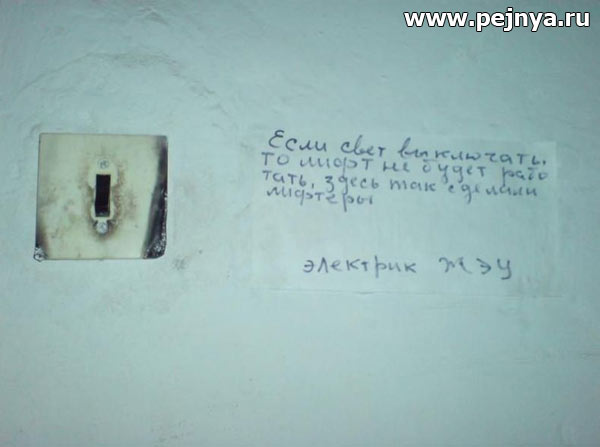 www.pejnya.ru
Если свет выключать,
то лифт не будет рабо
тать, здесь так сделали
лифтеры
электрик ЖЭУ